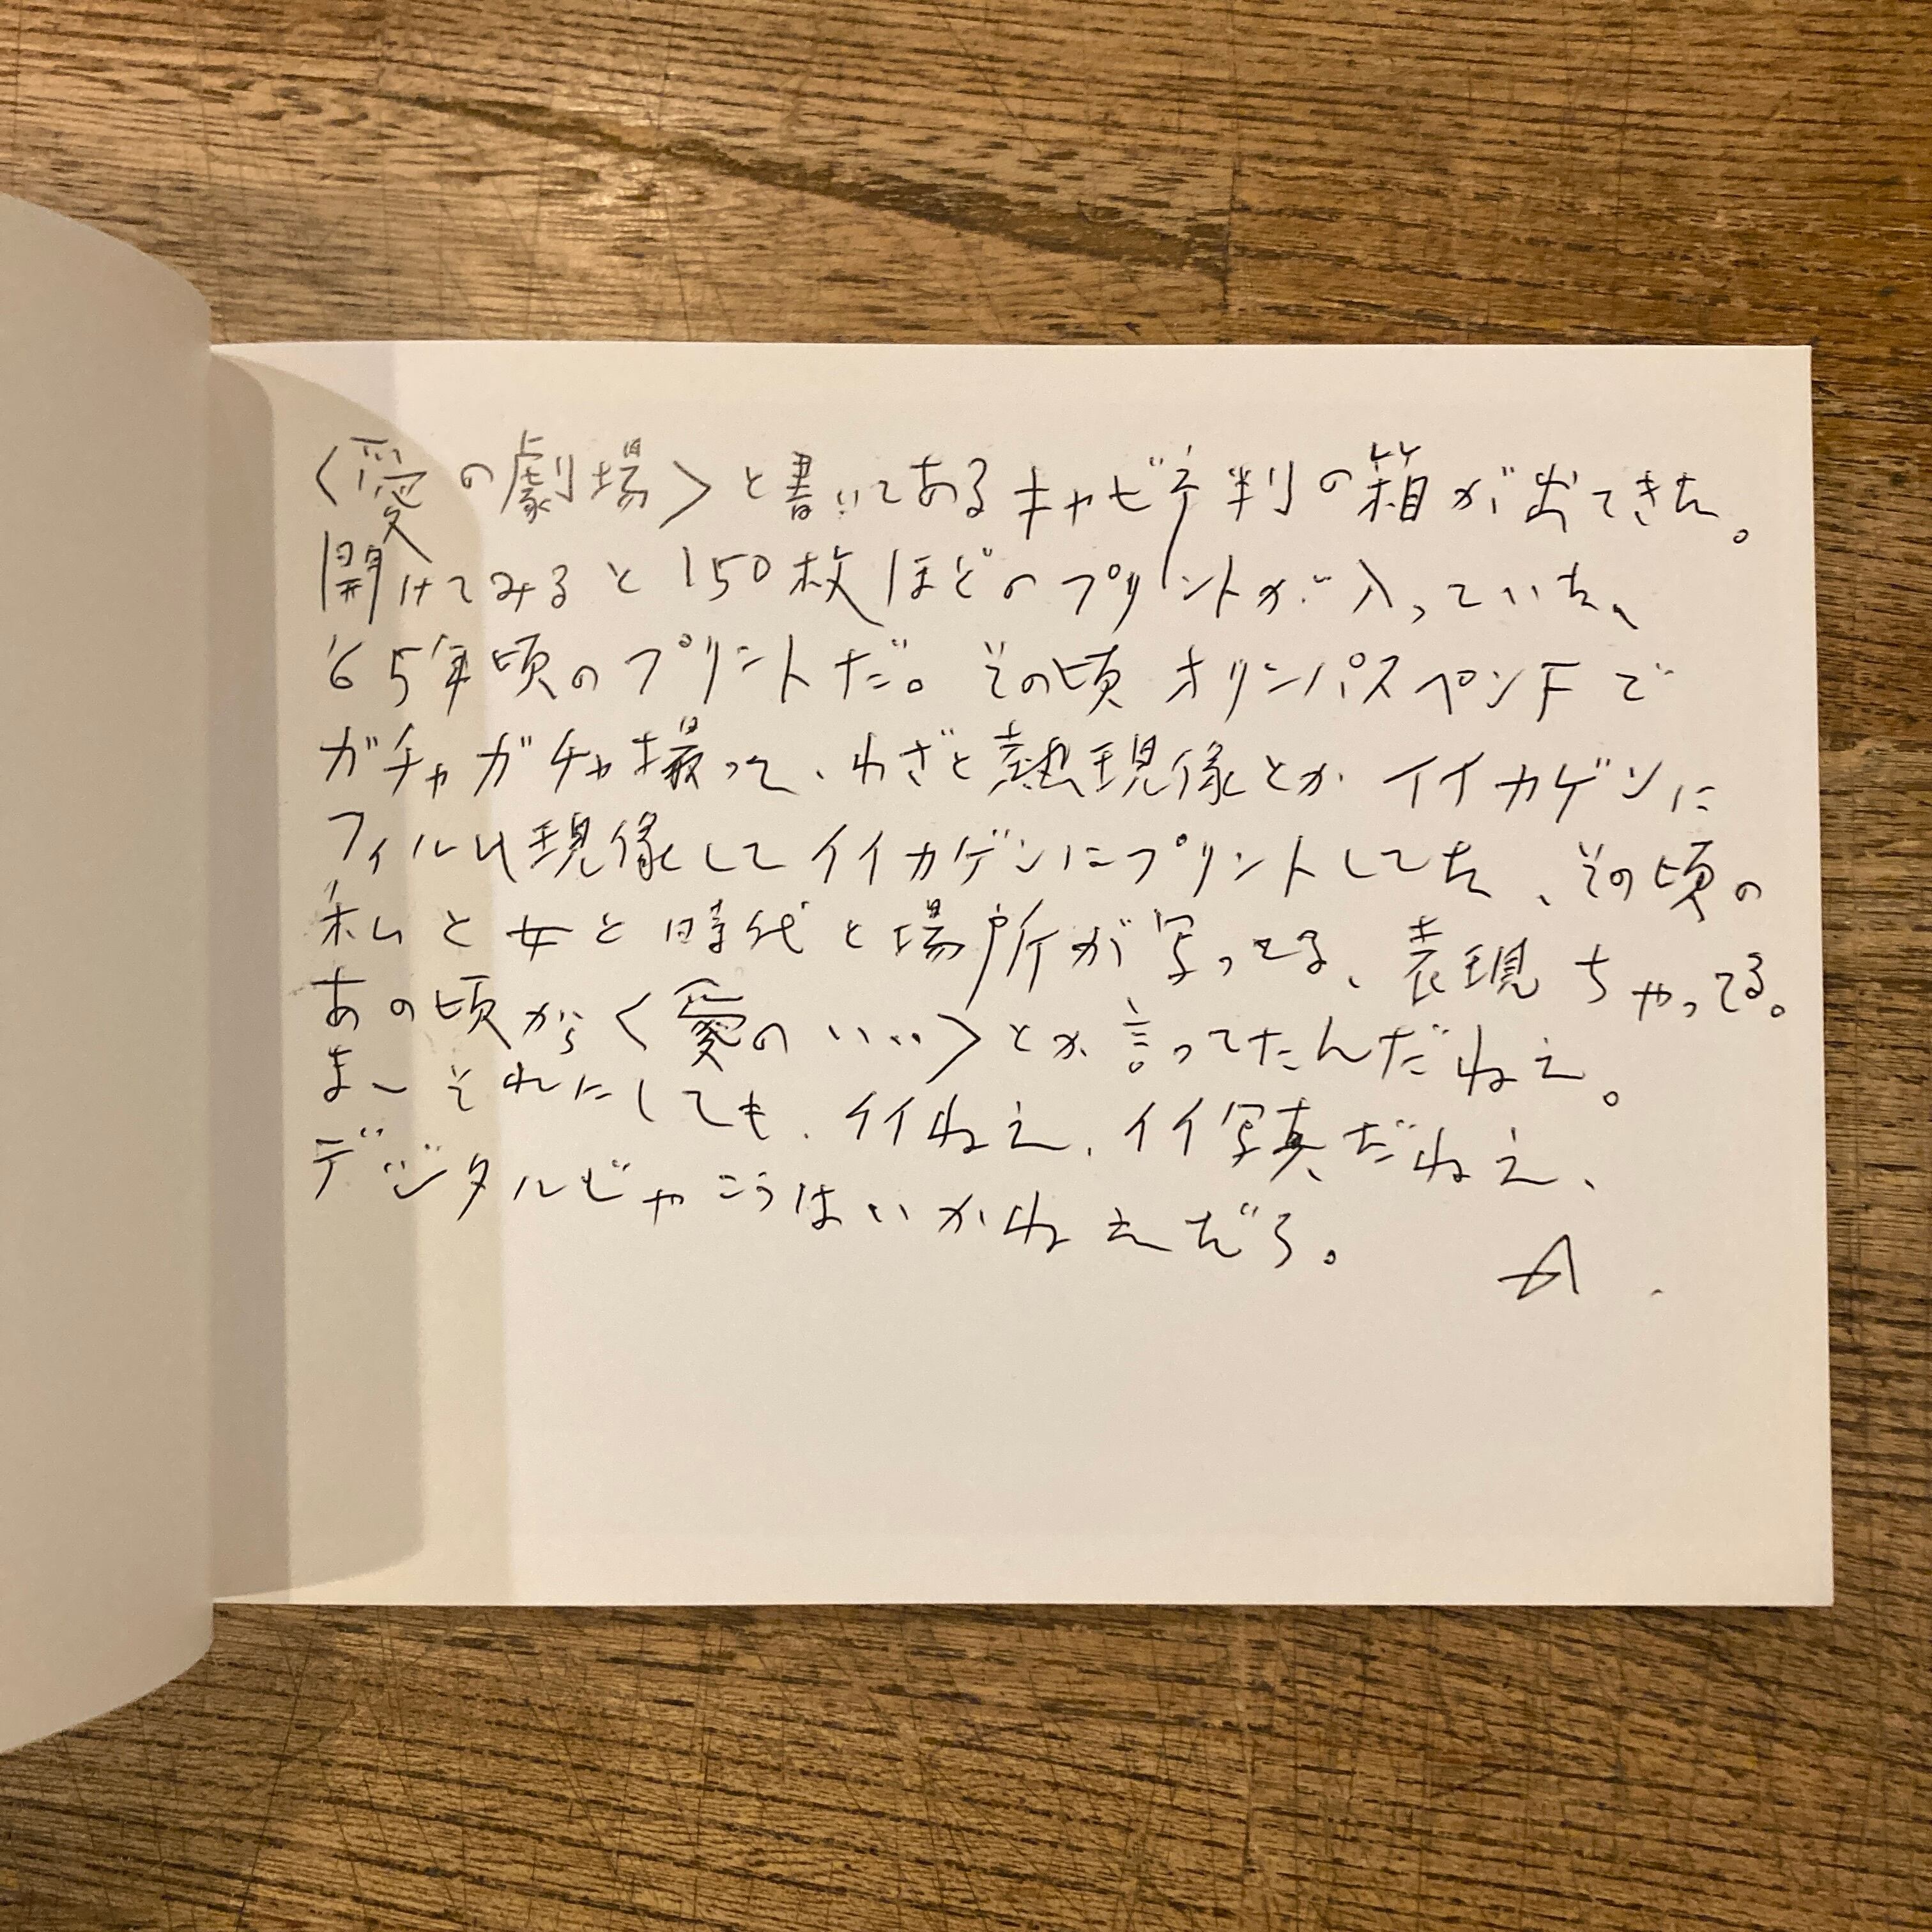 〈愛の劇場〉と書いてあるキャビネ判の箱が出てきた。
開けてみると150枚ほどのプリントが入っていた、
'65年頃のプリントだ。その頃オリンパスペンFで
ガチャガチャ撮って、わざと熱現像とかイイカゲンに
フィルム現像してイイカゲンにプリントしてた、その頃の
私と女と時代と場所が写ってる、表現しちゃってる。
あの頃から〈愛の・・・・〉とか言ってたんだねえ。
まーそれにしても、イイねえ、イイ写真だねえ、
デジタルじゃこうはいかねえだろ。
A.